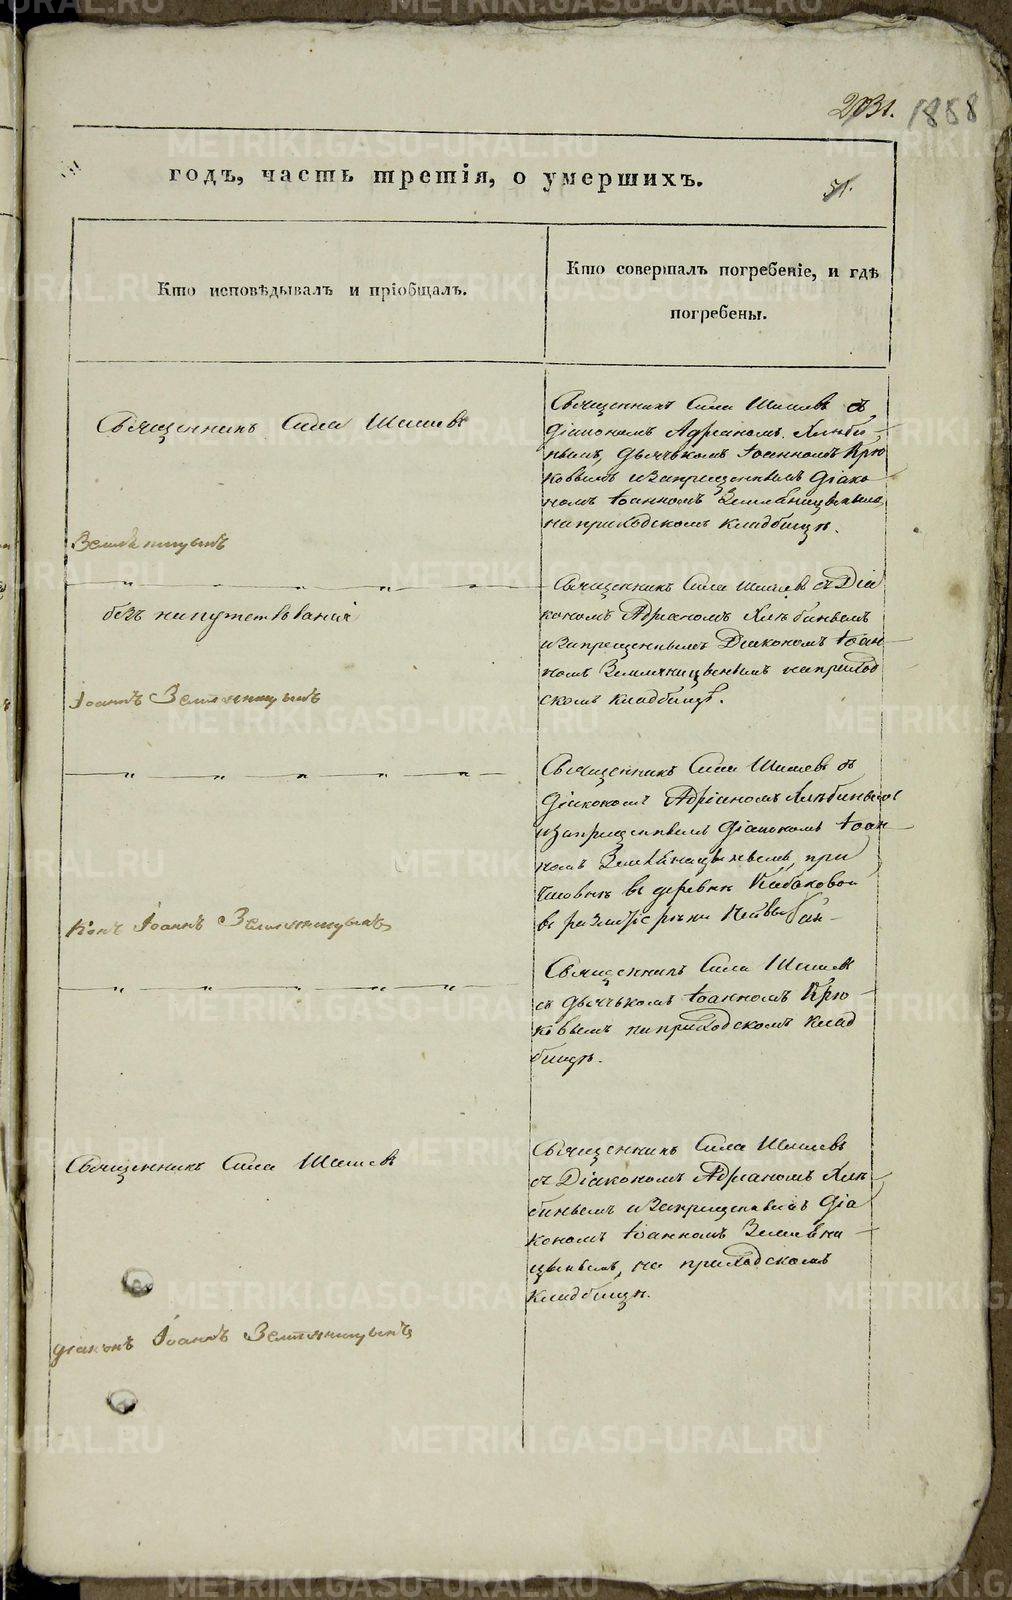 1858
51.
годъ, часть третія, о умершихъ.
Кто исповѣдывалъ и пріобщалъ.
Кто совершалъ погребеніе, и гдѣ
погребены.
Священникъ Сила Шишевъ
Священникъ Сила Шишевъ съ
Діакономъ Адріаномъ Хлѣби-
нымъ, дьячькомъ Іоанномъ Крю
ковымъ и запрещеннымъ Діако
номъ Іоанномъ Земляницынымъ,
на приходскомъ кладбищѣ.
Земляницынъ
безъ напутствованія
Священникъ Сила Шишевъ съ Діа
кономъ Адріаномъ Хлѣбинымъ
и запрещеннымъ Діакономъ Іоан-
номъ Земляницынымъ на приход
скомъ кладбищѣ.
Іоаннъ Земляницынъ
Священникъ Сила Шишевъ съ
Діакономъ Адріаномъ Хлѣбинымъ
и запрещеннымъ Діакономъ Іоан-
номъ Земляницынымъ, при
часовнѣ въ деревнѣ Кабаковой
въ рѣки Нейвы
Іоаннъ Земляницынъ
Священникъ Сила Шишевъ
съ дьячькомъ Іоанномъ Крю-
ковымъ на приходскомъ клад
бищѣ.
Священникъ Сила Шишевъ
Священникъ Сила Шишевъ
съ Діакономъ Адріаномъ Хлѣ-
бинымъ и запрещеннымъ Діа
кономъ Іоанномъ Земляни-
цынымъ, на приходскомъ
кладбищѣ.
діаконъ Іоаннъ Земляницынъ
METRIKI.GASO-URAL.RU